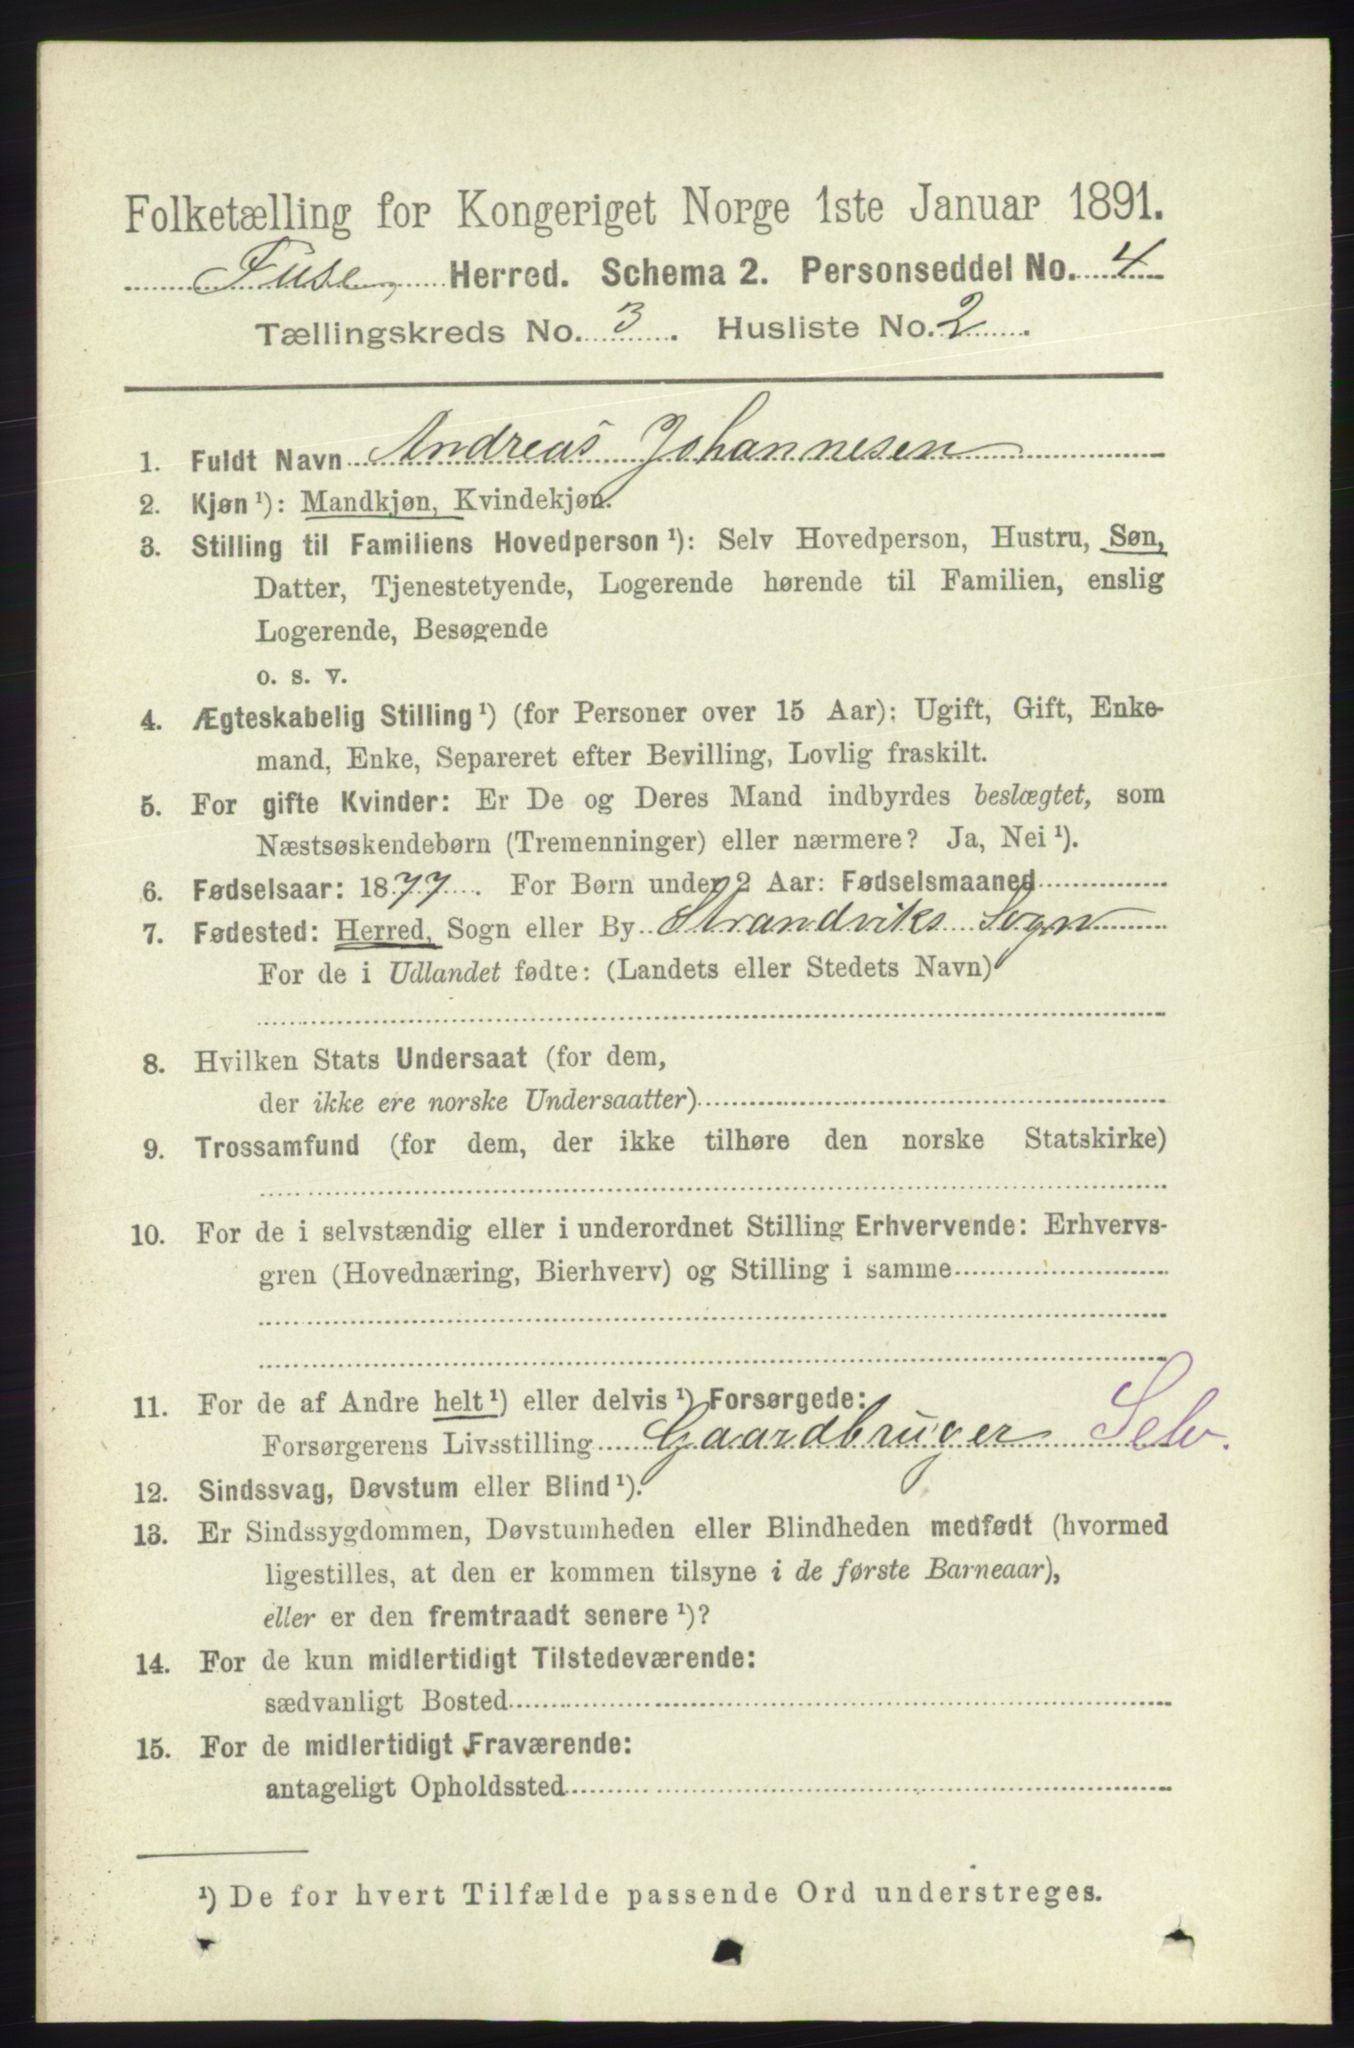 Folketælling for Kongeriget Norge 1ste Januar 1891.
Fuse, Herred. Schema 2. Personseddel No. 4
Tællingskreds No. 3. Husliste No. 2.
1. Fuldt Navn Andreas Johannesen
2. Kjøn ¹): Mandkjøn, Kvindekjøn.
3. Stilling til Familiens Hovedperson ¹): Selv Hovedperson, Hustru, Søn,
Datter, Tjenestetyende, Logerende hørende til Familien, enslig
Logerende, Besøgende
o. s. v.
4. Ægteskabelig Stilling ¹) (for Personer over 15 Aar): Ugift, Gift, Enke-
mand, Enke, Separeret efter Bevilling, Lovlig fraskilt.
5. For gifte Kvinder: Er De og Deres Mand indbyrdes beslægtet, som
Næstsøskendebørn (Tremenninger) eller nærmere? Ja, Nei ¹).
6. Fødselsaar: 1877. For Børn under 2 Aar: Fødselsmaaned
7. Fødested: Herred, Sogn eller By Strandviks Sogn
For de i Udlandet fødte: (Landets eller Stedets Navn)
8. Hvilken Stats Undersaat (for dem,
der ikke ere norske Undersaatter)
9. Trossamfund (for dem, der ikke tilhøre den norske Statskirke)
10. For de i selvstændig eller i underordnet Stilling Erhvervende: Erhvervs-
gren (Hovednæring, Bierhverv) og Stilling i samme
11. For de af Andre helt ¹) eller delvis ¹) Forsørgede:
Forsørgerens Livsstilling Gaardbruger Selv.
12. Sindssvag, Døvstum eller Blind ¹).
13. Er Sindssygdommen, Døvstumheden eller Blindheden medfødt (hvormed
ligestilles, at den er kommen tilsyne i de første Barneaar),
eller er den fremtraadt senere ¹)?
14. For de kun midlertidigt Tilstedeværende:
sædvanligt Bosted
15. For de midlertidigt Fraværende:
antageligt Opholdssted
¹) De for hvert Tilfælde passende Ord understreges.